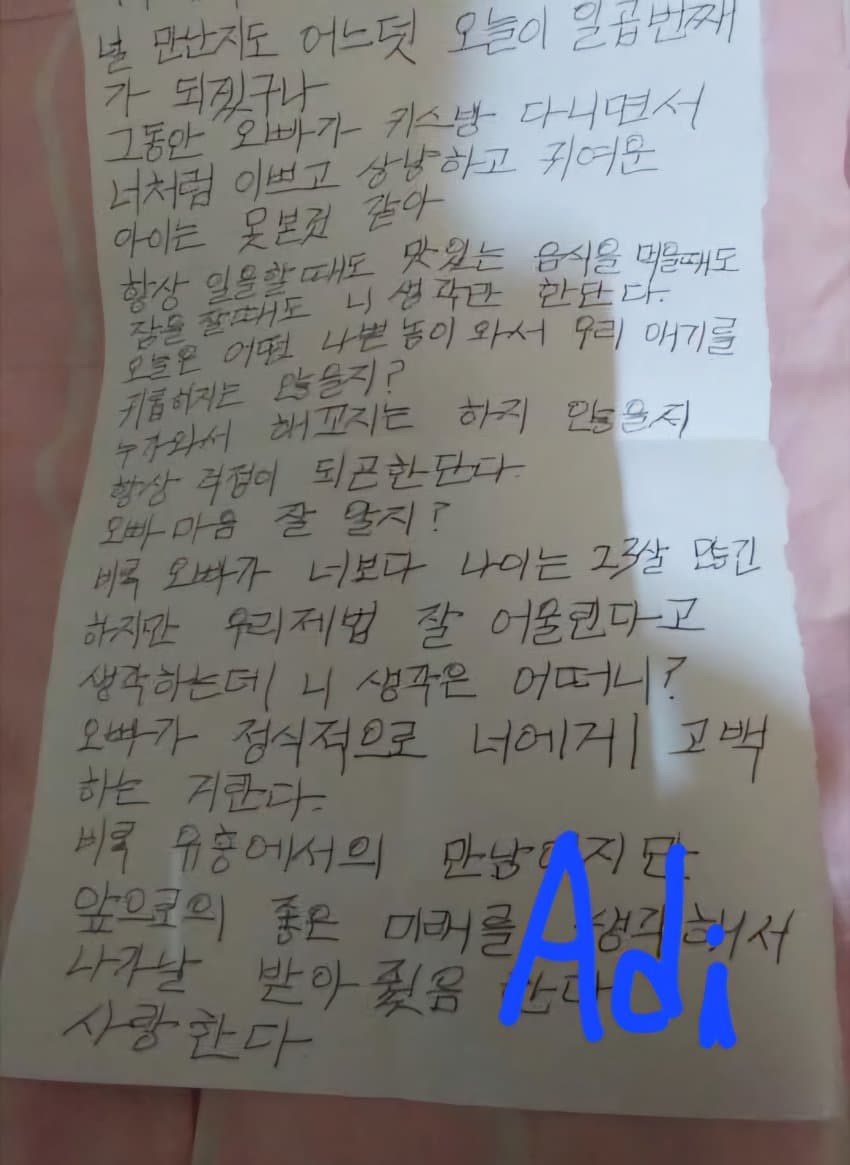 널 만난지도 어느덧 오늘이 일곱번째
가 되겠구나
그동안 오빠가 키스방 다니면서
너처럼 이쁘고 상냥하고 귀여운
아이는 못본것 같아
항상 일을할때도 맛있는 음식을 먹을때도
잠을 잘때도 니 생각만 한단다.
오늘은 어떤 나쁜놈이 와서 우리 애기를
귀롭히지는 않을지?
누가와서 해꼬지는 하지 않을지
항상 걱정이 되곤한단다.
오빠 마음 잘 알지?
비록 오빠가 너보다 나이는 23살 많긴
하지만 우리제법 잘 어울린다고
생각하는데 니 생각은 어떠니?
오빠가 정식적으로 너에게 고백
하는 거란다.
비록 유흥에서의 만남이지만
앞으로의 좋은 미래를 생각해서
나가날 받아 한다
사랑한다
Adi